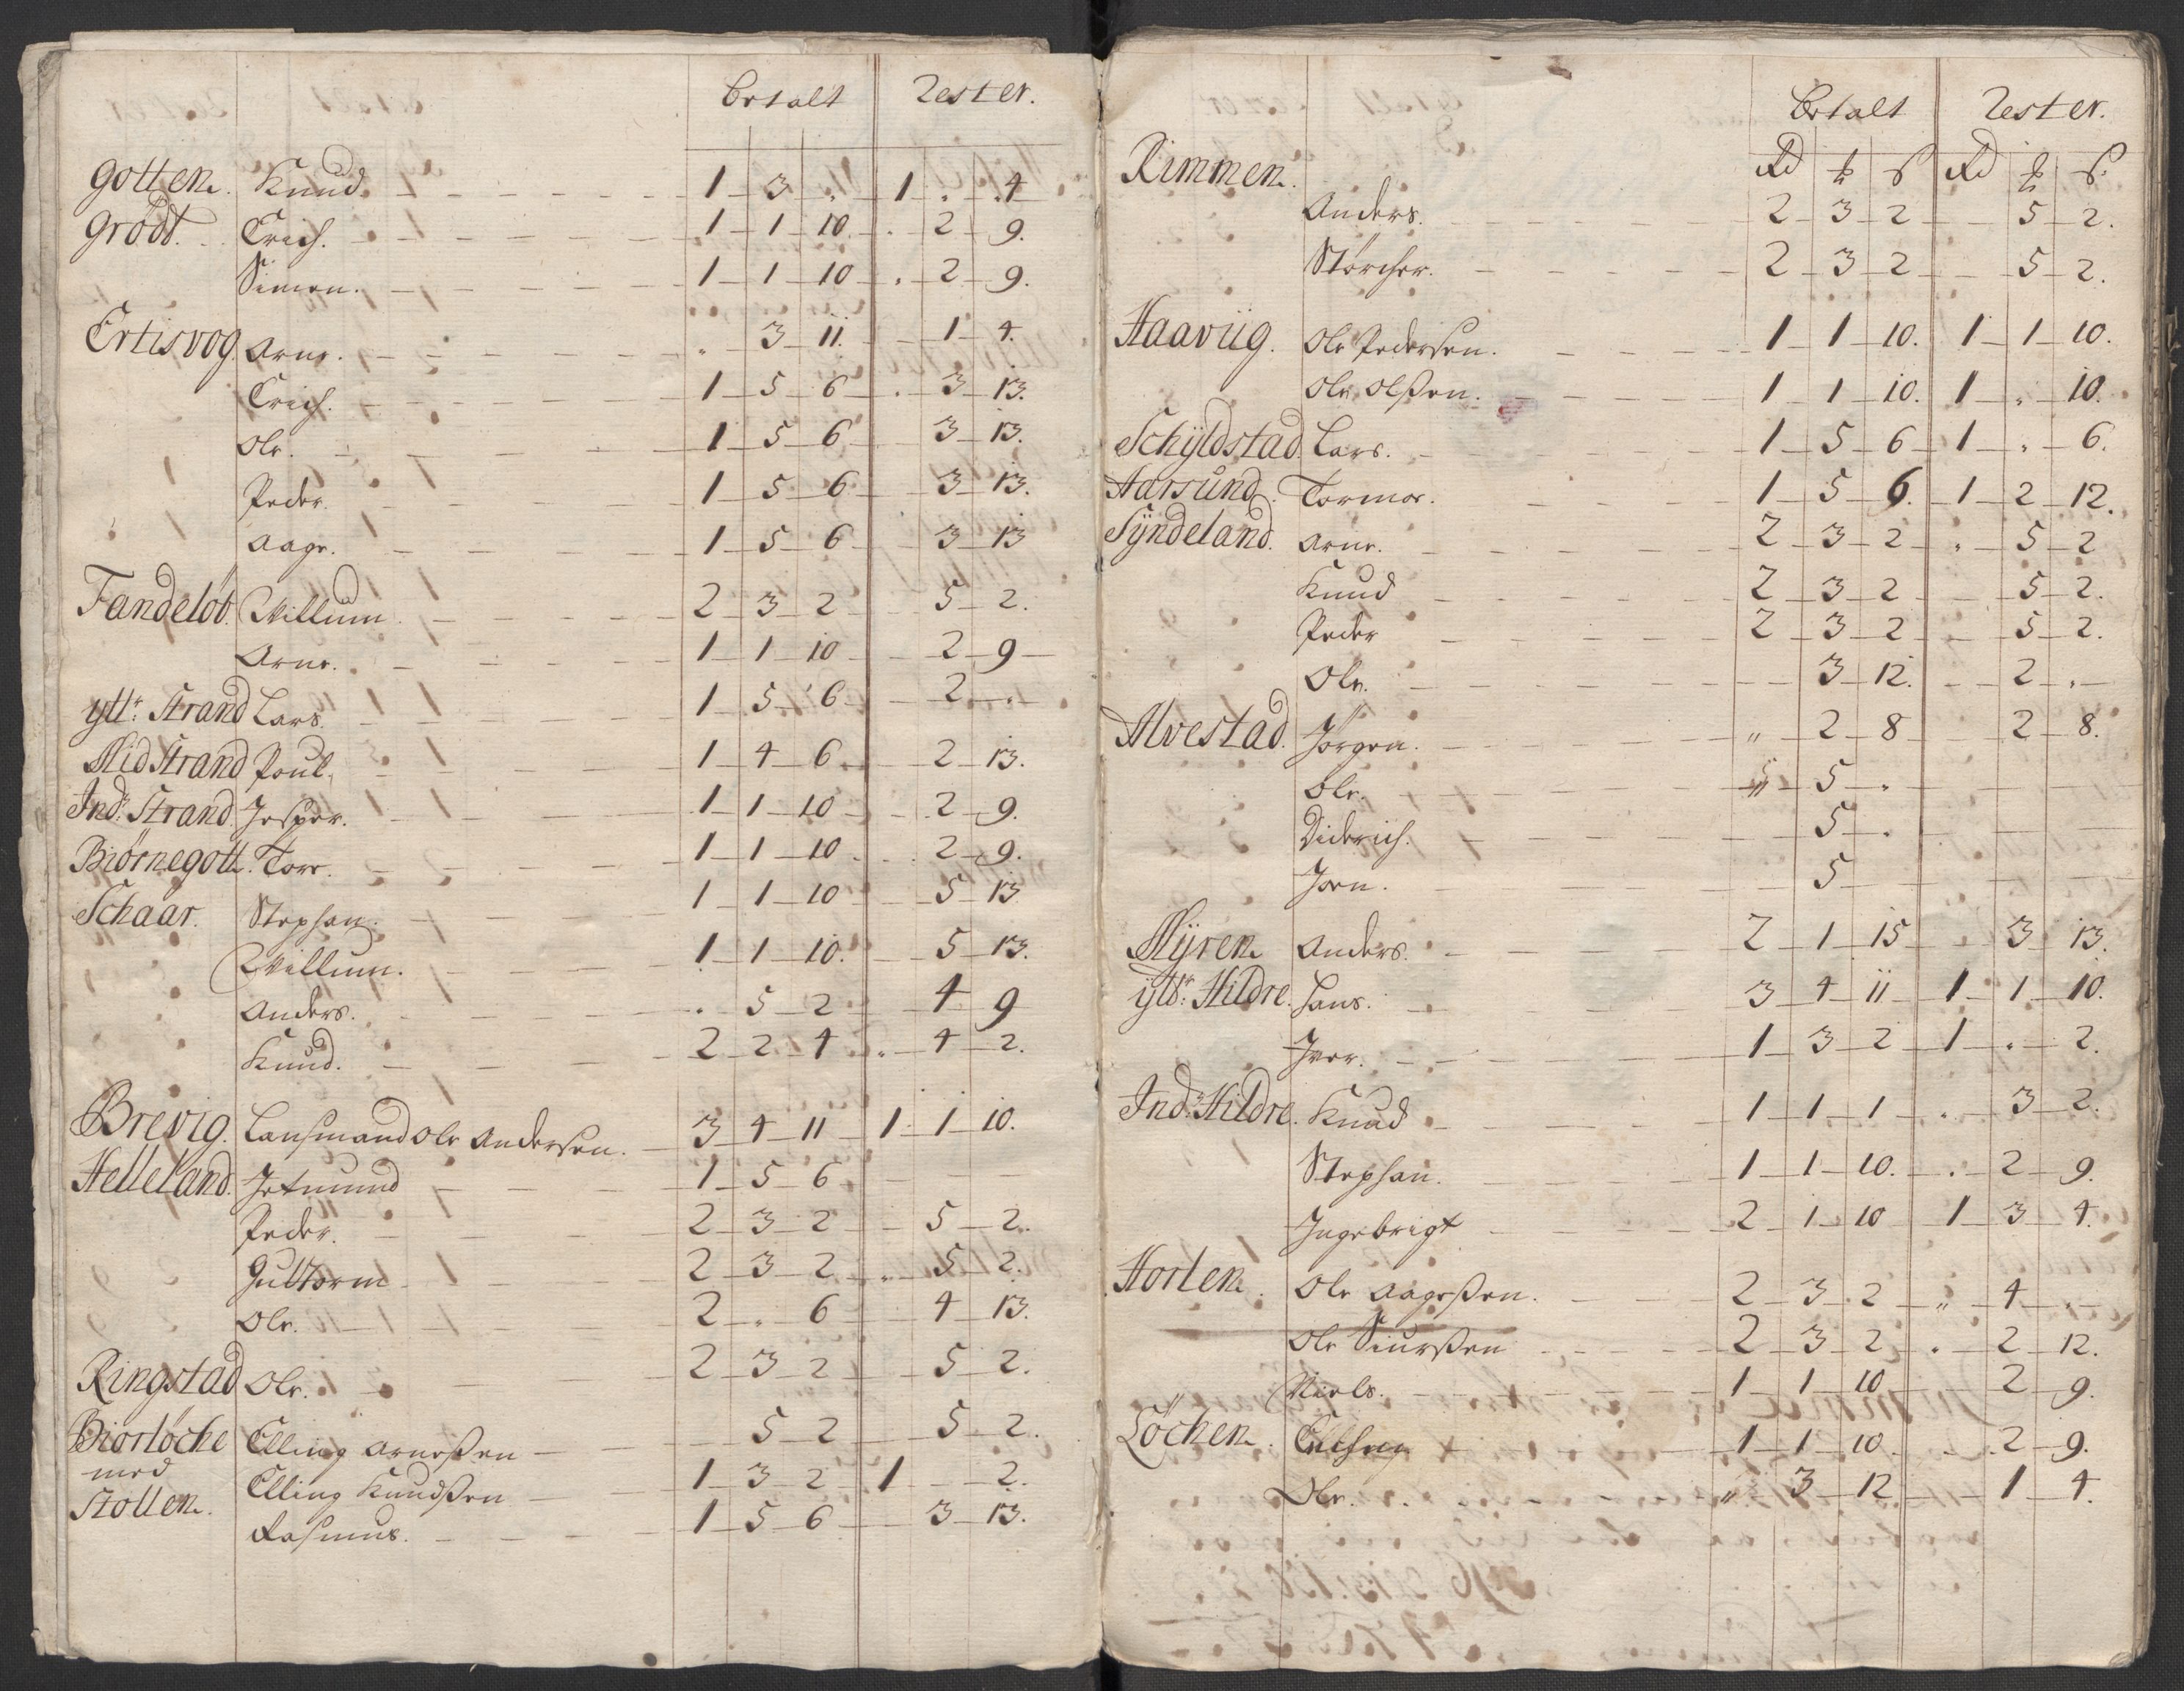 betalt Rester.
gotten. Knud. 1 3 . 1 . 4
grödt. Erich. 1 1 10 . 2 9.
Simen. 1 1 10 . 2 9.
Ertisvog Arne. . 3 11. 1 4.
Erich. 1 5 6 . 3 13.
Ole. 1 5 6 3 13.
Peder. 1 5 6 3 13.
Aage. 1 5 6 3 13
Fandelöb. Willum 2 3 2 5 2.
Arne. 1 1 10 2 9
ytt: Strand Lars 1 5 6 2 .
Mid Strand Poul. 1 4 6 2 13.
Ind: Strand Jesper. 1 1 10 2 9.
Biörnegott. Tore. 1 1 10 2 9.
Schaar. Stephan. 1 1 10 5 13
Willum. 1 1 10. 5 13.
Anders. . 5 2 4 9
Knud. 2 2 4 . 4 2.
Brevig. Lensmand Ole Andersen. 3 4 11 1 1 10.
Helleland. Jetmund 1 5 6
Peder. 2 3 2 5 2.
Guttorm 2 3 2 . 5 2.
Ole. 2 . 6 4 13.
Ringstad Ole. 2 3 2 5 2.
Biorlöche Elling Arneßen 5 2 5 2.
med Elling Knudßen 1 3 2 1 2.
Stollen. Rasmus. 1 5 6 3 13.
Betalt Rester.
Rimmen. Rd ß Rd ß
Anders. 2 3 2 5 2.
Störcher. 2 3 2 5 2.
Haaviig. Ole Pedersen. 1 1 10. 1 1 10.
Ole Olßen. 1 1 10. 1 . 10.
Schÿldstad Lars. 1 5 6 1 . 6.
Aarsund. Tormoe. 1 5 6. 1 2 12.
Sÿndeland. Arne. 2 3 2 . 5 2
Knud 2 3 2 5 2.
Peder 2 3 2 5 2.
Ole. 3 12. 2 .
Alvestad. Jörgen. " 2 8 2 8.
Ole. " 5 .
Diderich. 5 .
Jorn. 5
Mÿren Anders. 2 1 15 3 13.
ÿtt: Hildre. Hans. 3 4 11 1 1 10.
Iver. 1 3 2 1 . 2.
Ind: Hildre. Knud 1 1 1 . 3 2.
Stephan. 1 1 10. . 2 9.
Ingebrigt 2 1 10 1 3 4.
Horlen. Ole Aageßen. 2 3 2 " 4 .
Ole Siurßen 2 3 2 . 2 12.
Niels. 1 1 10 2 9.
Löchen. 1 1 10 2 9.
Ole. " 3 12 1 4.